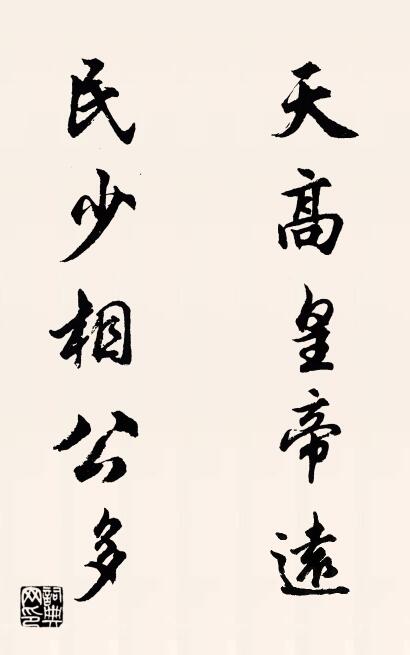 天高皇帝遠
民少相公多
詞典网印